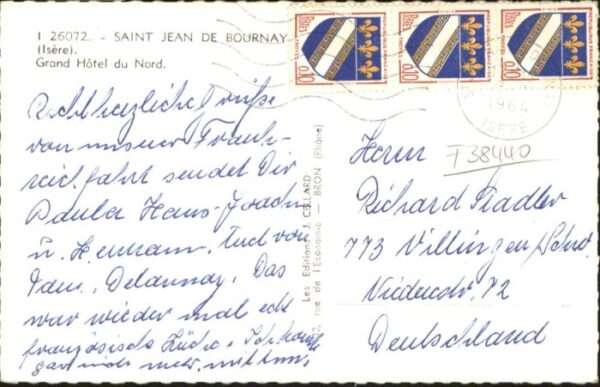 I 26072. - SAINT JEAN DE BOURNAY
(Isère).
Grand Hôtel du Nord.
Recht herzliche Grüße
von unserer Frank-
reichfahrt sendet Dir
Paula Hans-Joach
u. Hermann. Und von
Fam. Delaunay. Das
war wieder mal echt
französische Küche. Ich
gar nicht mehr
Les Editions J. CELLARD
rue de l'Economie - BRON (Rhône)
0,10
0,10
0,10
1964
ISERE
Herrn
T 38440
Richard Fiadler
773 Villingen/Schw.
Niederstr. 72
Deutschland